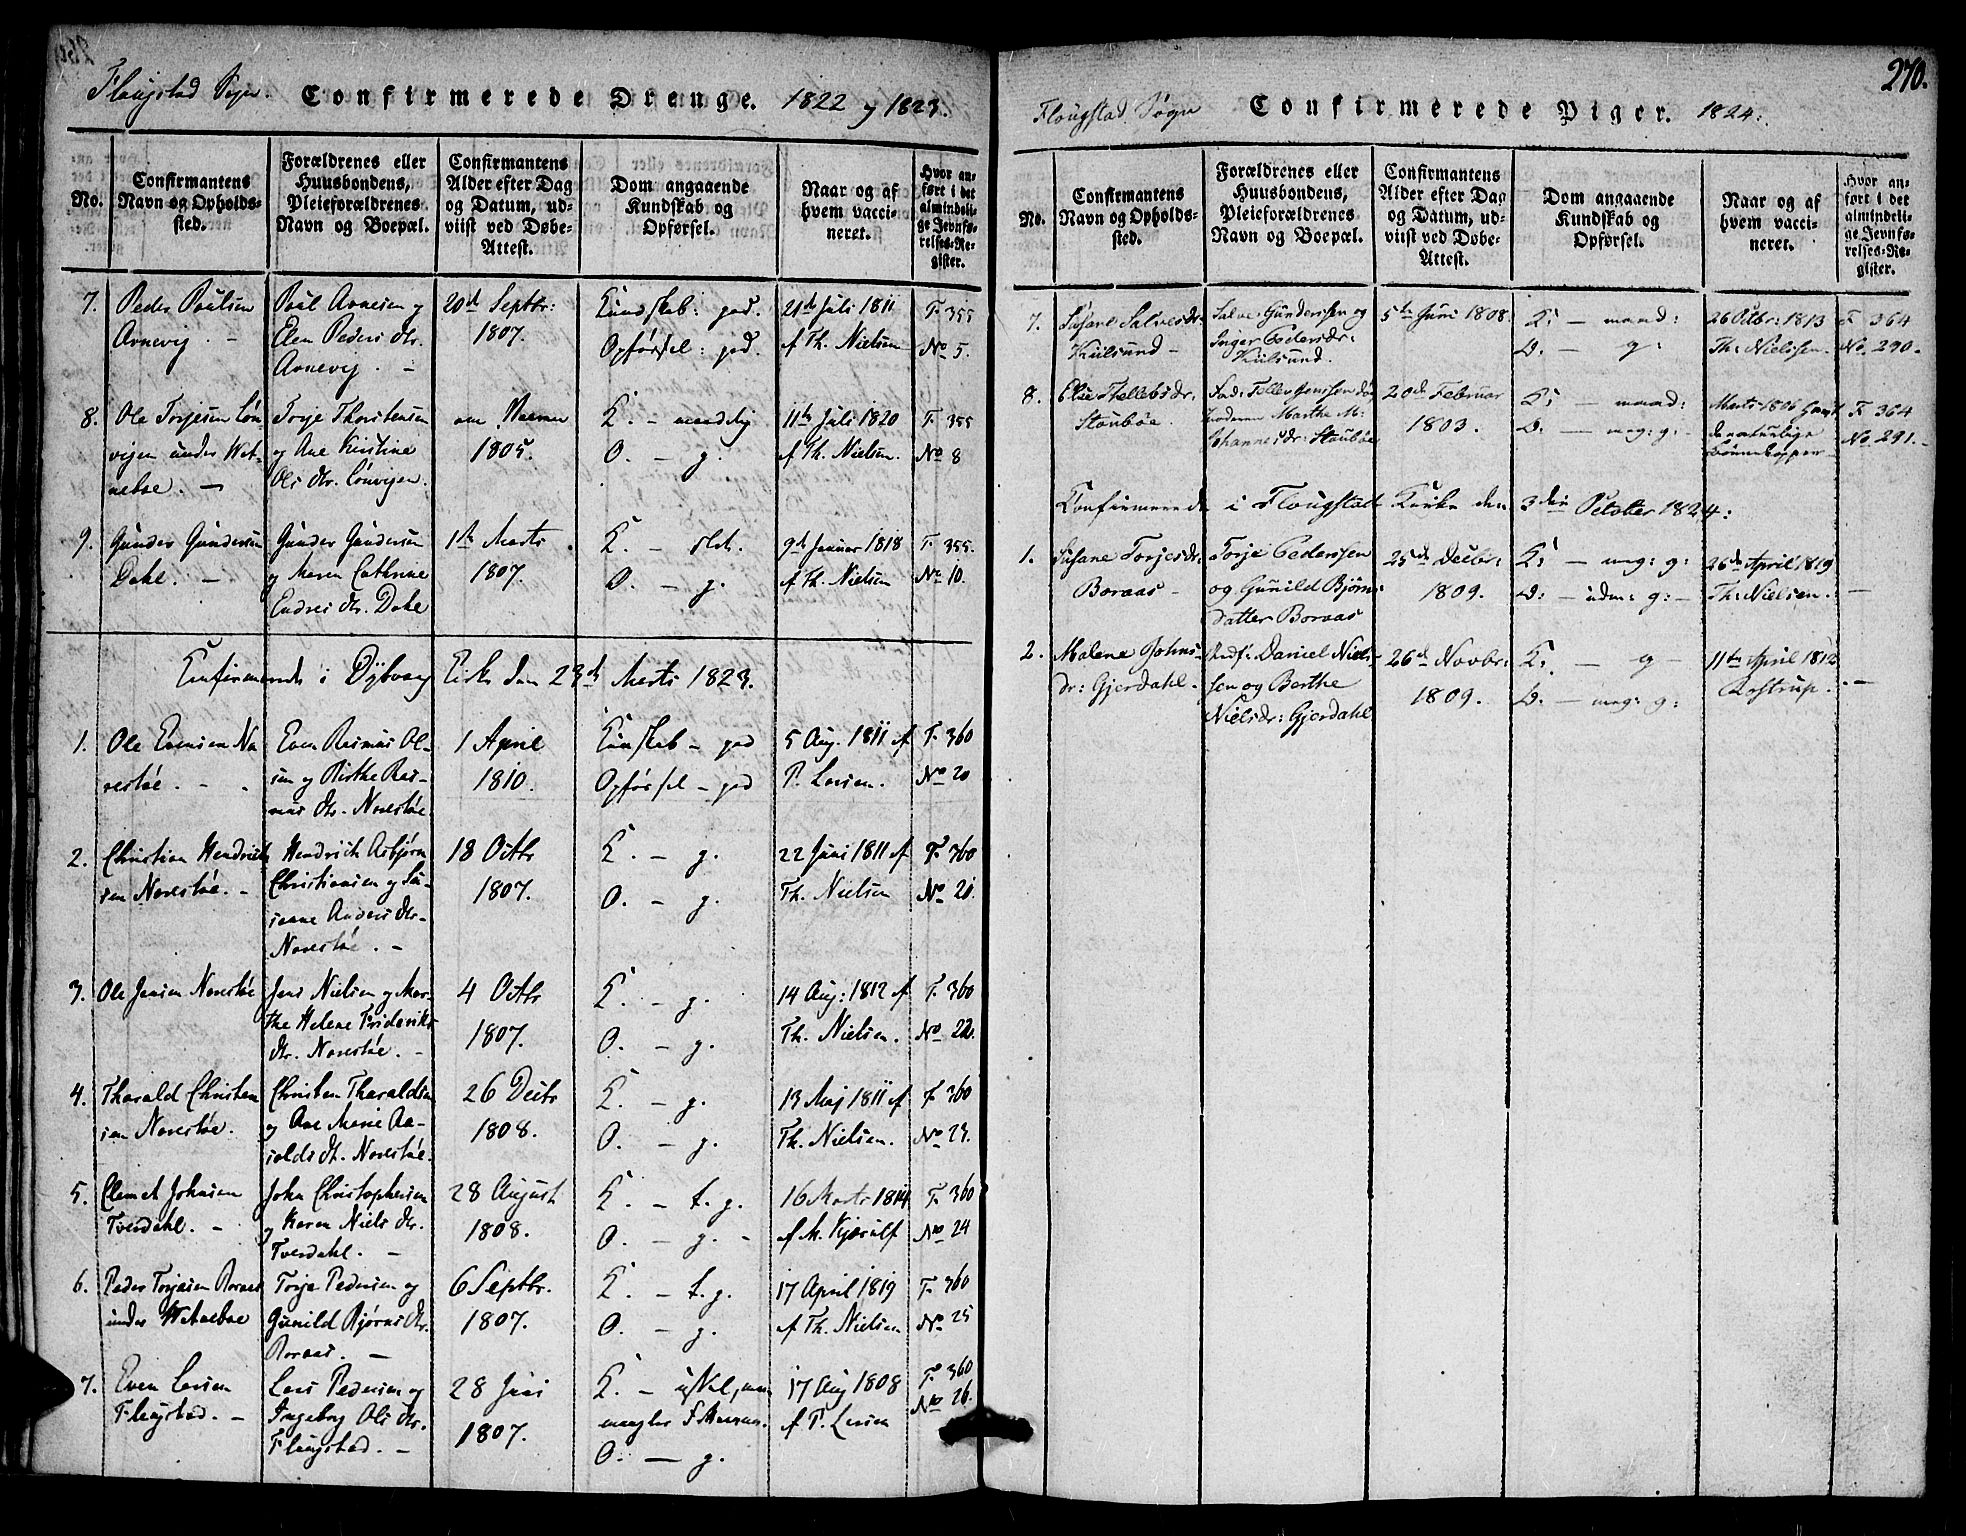 Flougstad Sogn. Confirmerede Drenge. 1822 og 1823.
No.
Confirmantens
Navn og Opholds-
sted.
Forældrenes eller
Huusbondens,
Pleieforældrenes
Navn og Boepæl.
Confirmantens
Alder efter Dag
og Datum, ud-
viist ved Døbe-
Attest.
Dom angaaende
Kundskab og
Opførsel.
Naar og af
hvem vacci-
neret.
Hvor an-
ført i det
almindeli-
ge Jevnfø-
relses-Re-
gister.
7. Peder Poulsen
Arnevig. -
Poul Arnesen og
Elen Peders Dtr.
Arnevig. -
20d Septbr:
1807.
Kundskab: god.
Opførsel: god.
21de Juli 1811
af Th. Nielsen
F. 355
No 5.
8. Ole Torjesen Løn
vigen under Wet-
neboe. -
Torje Thorstensen
og Ane Kirstine
Ols Dtr. Lønvigen.
1805.
K. - maadelig
O. - g.
11te Juli 1820
af Th. Nielsen.
F. 355
No 8
9. Gunder Gundersen
Dahl. -
Gunder Gundersen
og Maren Cathrine
Endres Dtr. Dahl
1te Marts
1807.
K. - slet.
O. - g.
9d Januar 1818
af Th. Nielsen
F. 355.
No 10.
Confirmerede i Dybvaag Kirke den 23d Marts 1823.
1. Ole Evensen Na
restøe. -
Even Rasmus Ol-
sen og Birthe Ras-
mus Dtr. Narestøe.
1 April
1810.
Kundskab - god
Opførsel - god
5 Aug. 1811 af
P. Larsen.
F. 360
No 20
2. Christian Hendrich
sen Narestøe. -
Hendrich Asbjørn
Christiansen og Su-
sanne Anders Dtr.
Narestøe. -
18 Octbr
1807.
K. - g.
O. - g.
22 Juni 1811 af
Th. Nielsen
F. 360
No 21.
3. Ole Jensen Narestøe
Jens Nielsen og Mar-
the Helene Frideriks
Dtr. Narestøe. -
4 Octbr
1807.
K. - g.
O. - g.
14 Aug: 1812 af
Th. Nielsen.
F. 360
No 22.
4. Tharald Christen
sen Narestøe.
Christen Tharaldsen
og Ane Marie Aa-
solds Dt. Narestøe.
26 Decbr
1808.
K. - g.
O. - g.
13 Maj 1811 af
Th. Nielsen.
F. 360
No 23.
5. Clemet Johnsen
Tverdahl. -
John Christophersen
og Karen Niels Dtr.
Tverdahl. -
28 August
1808.
K. - t. g.
O. - g. -
16 Marts 1814
af M. Kjerulf
F. 360
No 24
6. Peder Torjesen Boraas
under Wetneboe
Torje Pedersen og
Gunild Bjørns Dtr.
Boraas. -
6 Septbr.
1807.
K. - t. g.
O. - g.
17 April 1819
af Th. Nielsen
F. 360
No 25
7. Even Larsen
Flougstad. -
Lars Pedersen og
Ingeborg Ols Dtr.
Flougstad. -
28 Juni
1807.
K. -
mangler
O. - g.
17 Aug 1808
af P. Larsen
F. 360
No 26.
270.
Flougstad Sogn Confirmerede Piger. 1824.
No.
Confirmantens
Navn og Opholds-
sted.
Forældrenes eller
Huusbondens,
Pleieforældrenes
Navn og Boepæl.
Confirmantens
Alder efter Dag
og Datum, ud-
viist ved Døbe-
Attest.
Dom angaaende
Kundskab og
Opførsel.
Naar og af
hvem vacci-
neret.
Hvor an-
ført i det
almindeli-
ge Jevnfø-
relses-Re-
gister.
7. Susane Salvesdr:
Kiilsund -
Salve Gundersen og
Inger Pedersdr:
Kiilsund.
5te Juni 1808.
K: - maad:
O: - g:
26 Octbr: 1813
Th: Nielsen.
F 364
No. 290.
8. Else Tellebsdr:
Stoubøe.
Marthe M:
Johannesdr: Stoubøe
20de Februar
1803.
K: - maad:
O: - meg: g: -
Marts 1806 havt
de naturlige
Børnekopper
F. 364
No 291.
Confirmerede i Flougstad Kirke den 3die October 1824:
1. Susane Torjesdr:
Boraas -
Torje Pedersen
og Gunild Bjørns
datter Boraas
25de Decbr:
1809.
K: - meg: g:
O: - udm: g: -
26de April 1819
Th: Nielsen. -
2. Malene Johns-
dr: Gjerdahl. -
Daniel Niels-
sen og Berthe
Nielsdr: Gjerdahl
26de Novbr:
1809.
K: - g -
O: - meg: g:
11te April 1812
Rostrup. -